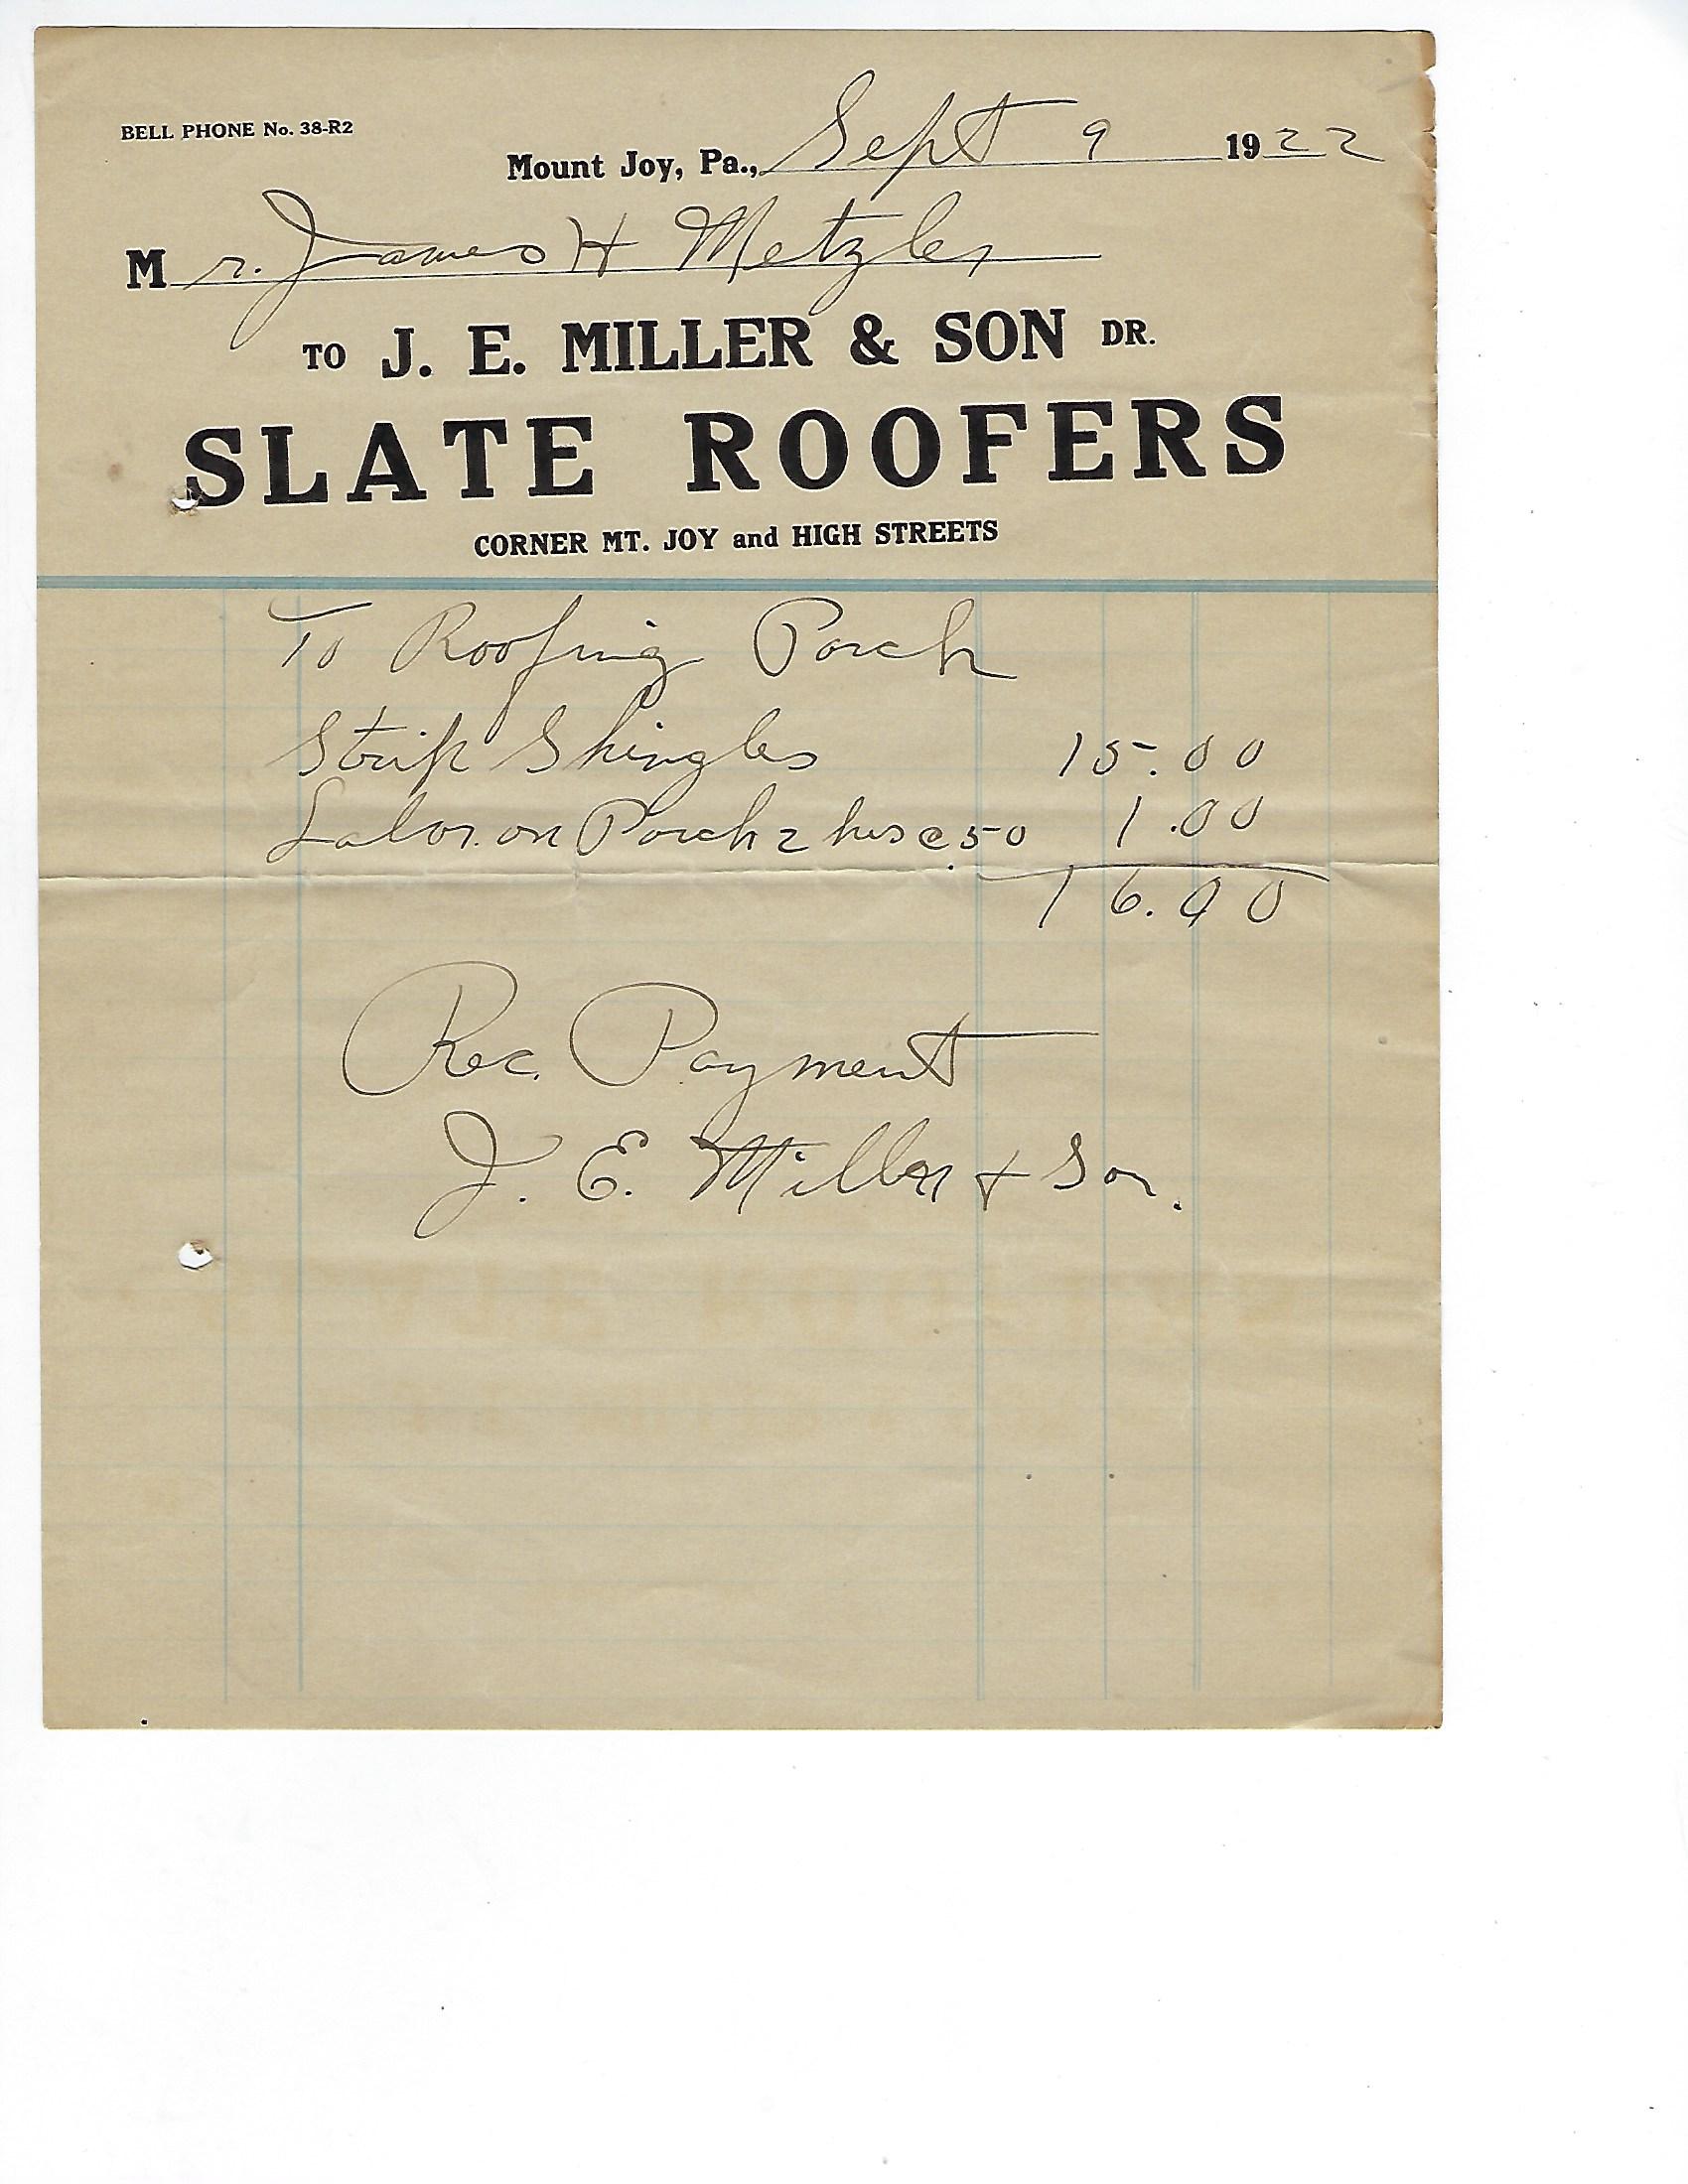 BELL PHONE No. 38-R2
Mount Joy, Pa., Sept 9 1922
Mr. James H Metzler
TO J. E. MILLER & SON DR.
SLATE ROOFERS
CORNER MT. JOY and HIGH STREETS
To Roofing Porch
Strip Shingles 15.00
Labor on Porch 2 hrs @ .50 1.00
16.00
Rec. Payment
J. E. Miller + Son.